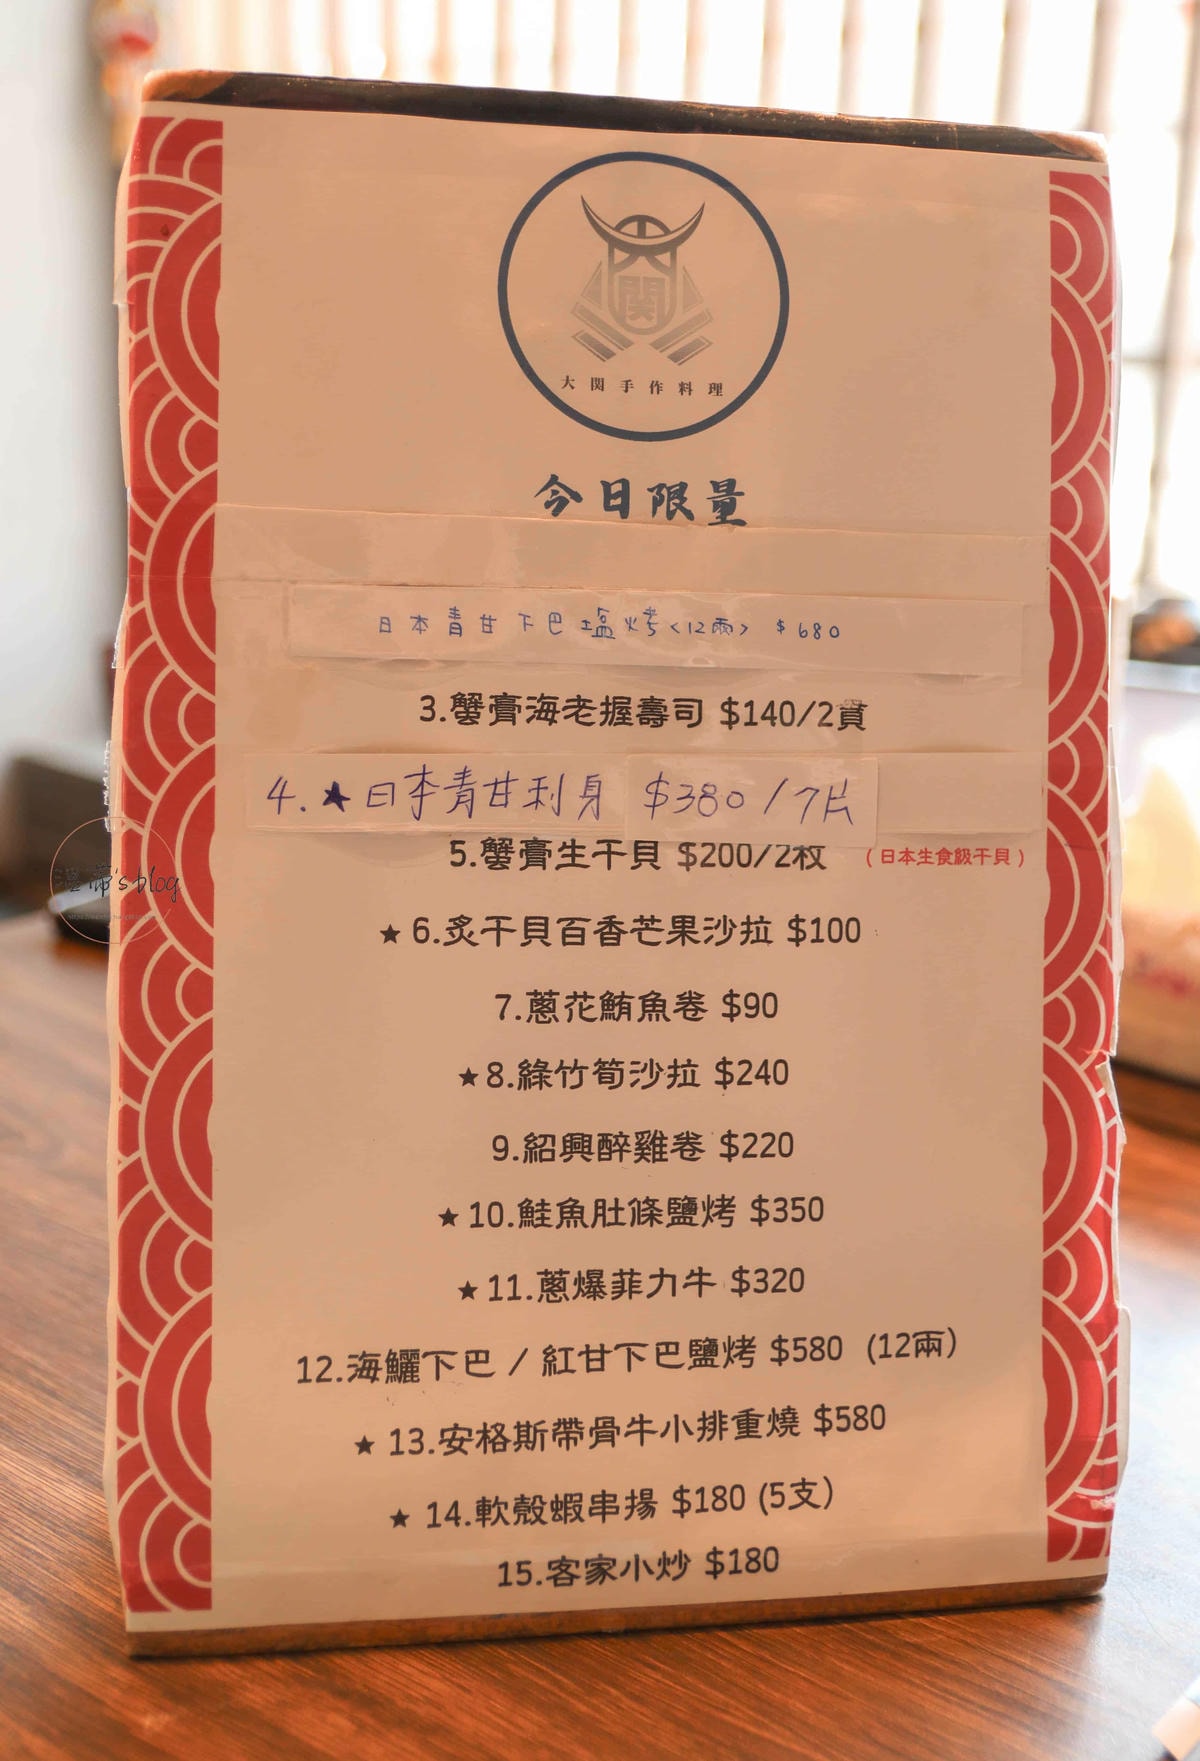 大関
大関手作料理
今日限量
日本青甘下巴塩烤<12兩> $680
3.蟹膏海老握壽司 $140/2貫
4.★日本青甘刺身 $380/7片
5.蟹膏生干貝 $200/2枚 (日本生食級干貝)
★6.炙干貝百香芒果沙拉 $100
7.蔥花鮪魚卷 $90
★8.綠竹筍沙拉 $240
9.紹興醉雞卷 $220
★10.鮭魚肚條鹽烤 $350
★11.蔥爆菲力牛 $320
12.海鱺下巴 / 紅甘下巴鹽烤 $580 (12兩)
★13.安格斯帶骨牛小排重燒 $580
★14.軟殼蝦串揚 $180 (5支)
15.客家小炒 $180
's blog